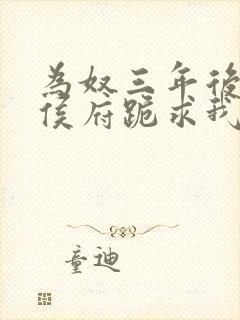 為奴三年後
侯府跪求我
童迪